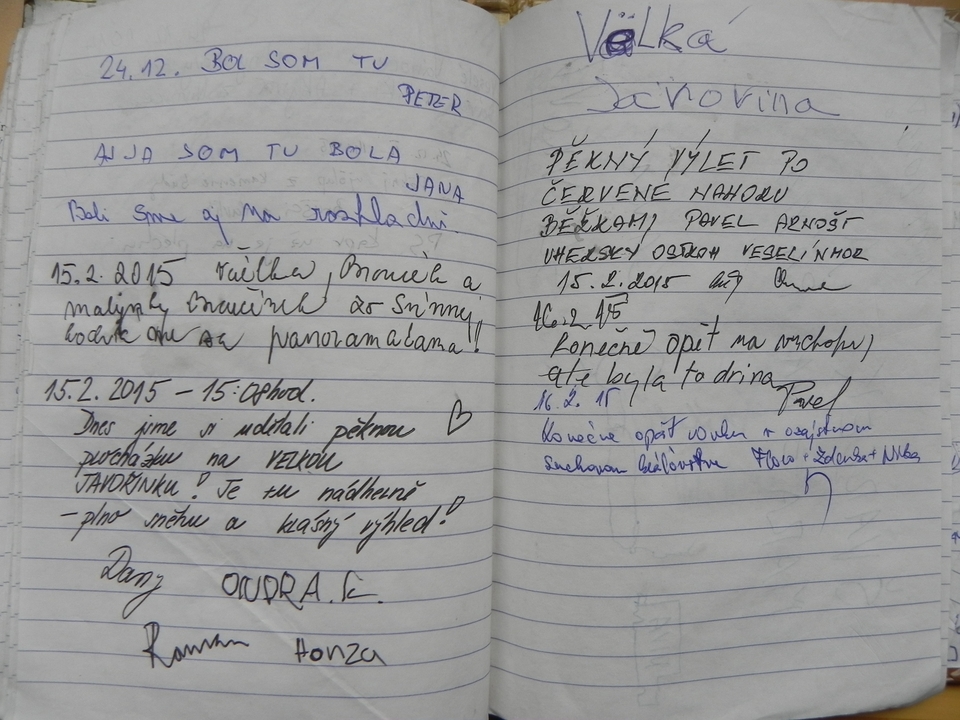 24.12. BOL SOM TU
PETER
AJ JA SOM TU BOLA
JANA
Boli sme aj na rozhladni.
15.2. 2015
a
malinký zo Srnnej
sme sa panoramatama!
15.2. 2015 – 15:08hod.
Dnes jsme si udělali pěknou
procházku na VELKOU
JAVOŘINKU! Je tu nádherně
– plno sněhu a krásný výhled!
Dany ONDRA.K.
Roman HONZA
Velká
Javorina
PĚKNÝ VÝLET PO
ČERVENÉ NAHORU
BĚŽKAMI PAVEL ARNOŠT
UHERSKÝ OSTROH VESELÍ N MOR
15.2.2015
16.2.15
Konečně opět na vrcholu,
ale byla to dřina
Pavel
16.2.15
Konečne opäť v
Suchovom kráľovstve + Zdenka +